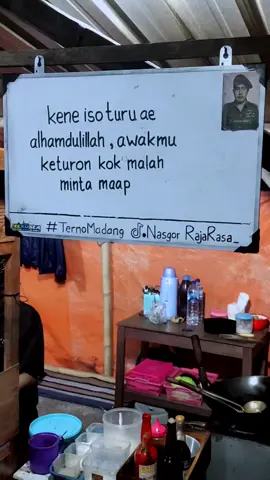 kene iso turu ae
alhamdulillah, awakmu
keturon kok malah
minta maap
#TernoMadang Nasgor RajaRasa_